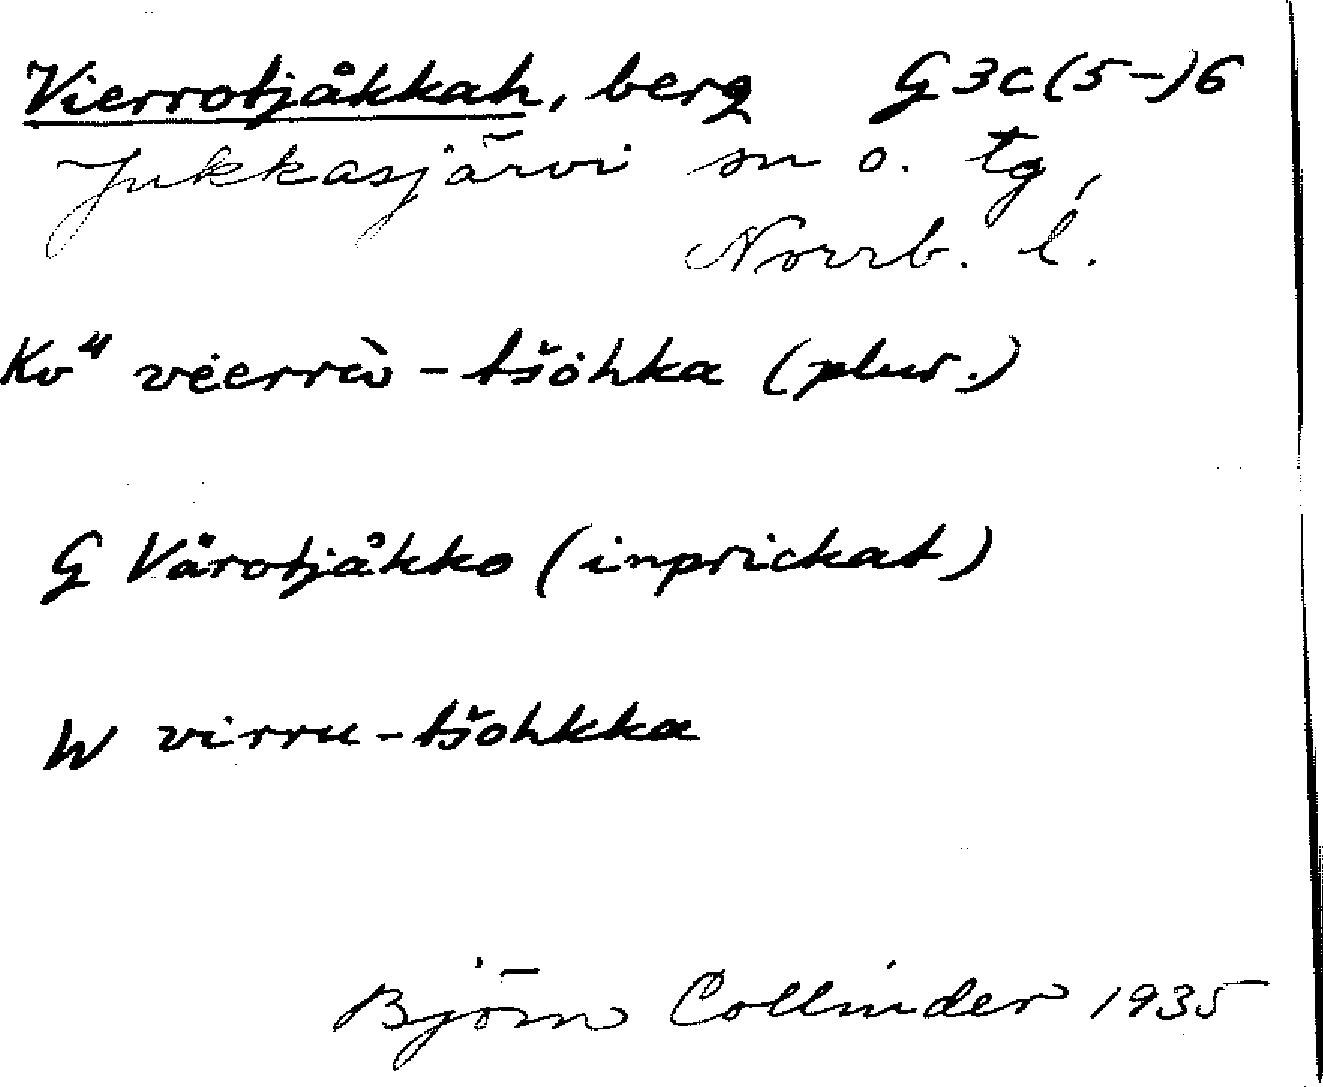 Vierrotjåkkah, berg G3c(5-)6
Jukkasjärvi sn o. tg,
Norrb. l.
Kv" vėerrὼ-tšȯhka (plur.)
G Vårotjåkko (inprickat)
W virru-tšohkka
Björn Collinder 1935